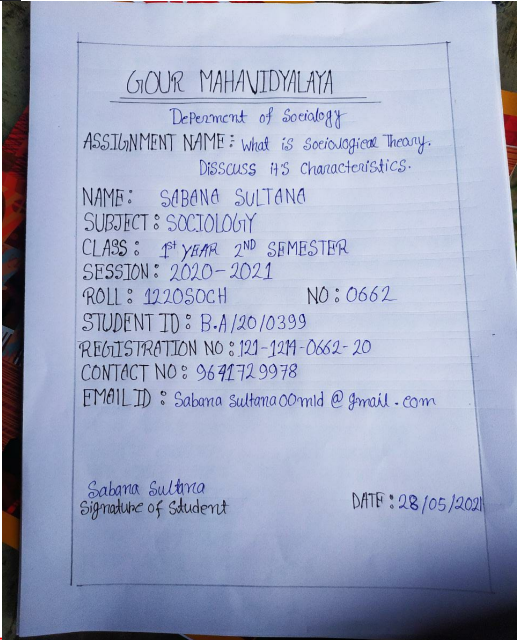 GOUR MAHAVIDYALAYA
Deperment of Socialogy
ASSIGNMENT NAME : What is Sociological Theory.
Disscuss it's characteristics.
NAME : SABANA SULTANA
SUBJECT : SOCIOLOGY
CLASS : 1st YEAR 2ND SEMESTER
SESSION : 2020-2021
ROLL : 1220SOCH NO : 0662
STUDENT ID : B.A/20/0399
REGISTRATION NO : 121-1214-0662-20
CONTACT NO : 9641729978
EMAIL ID : Sabana Sultana00mld @ gmail . com
Sabana Sultana
Signature of Student DATE : 28/05/2021